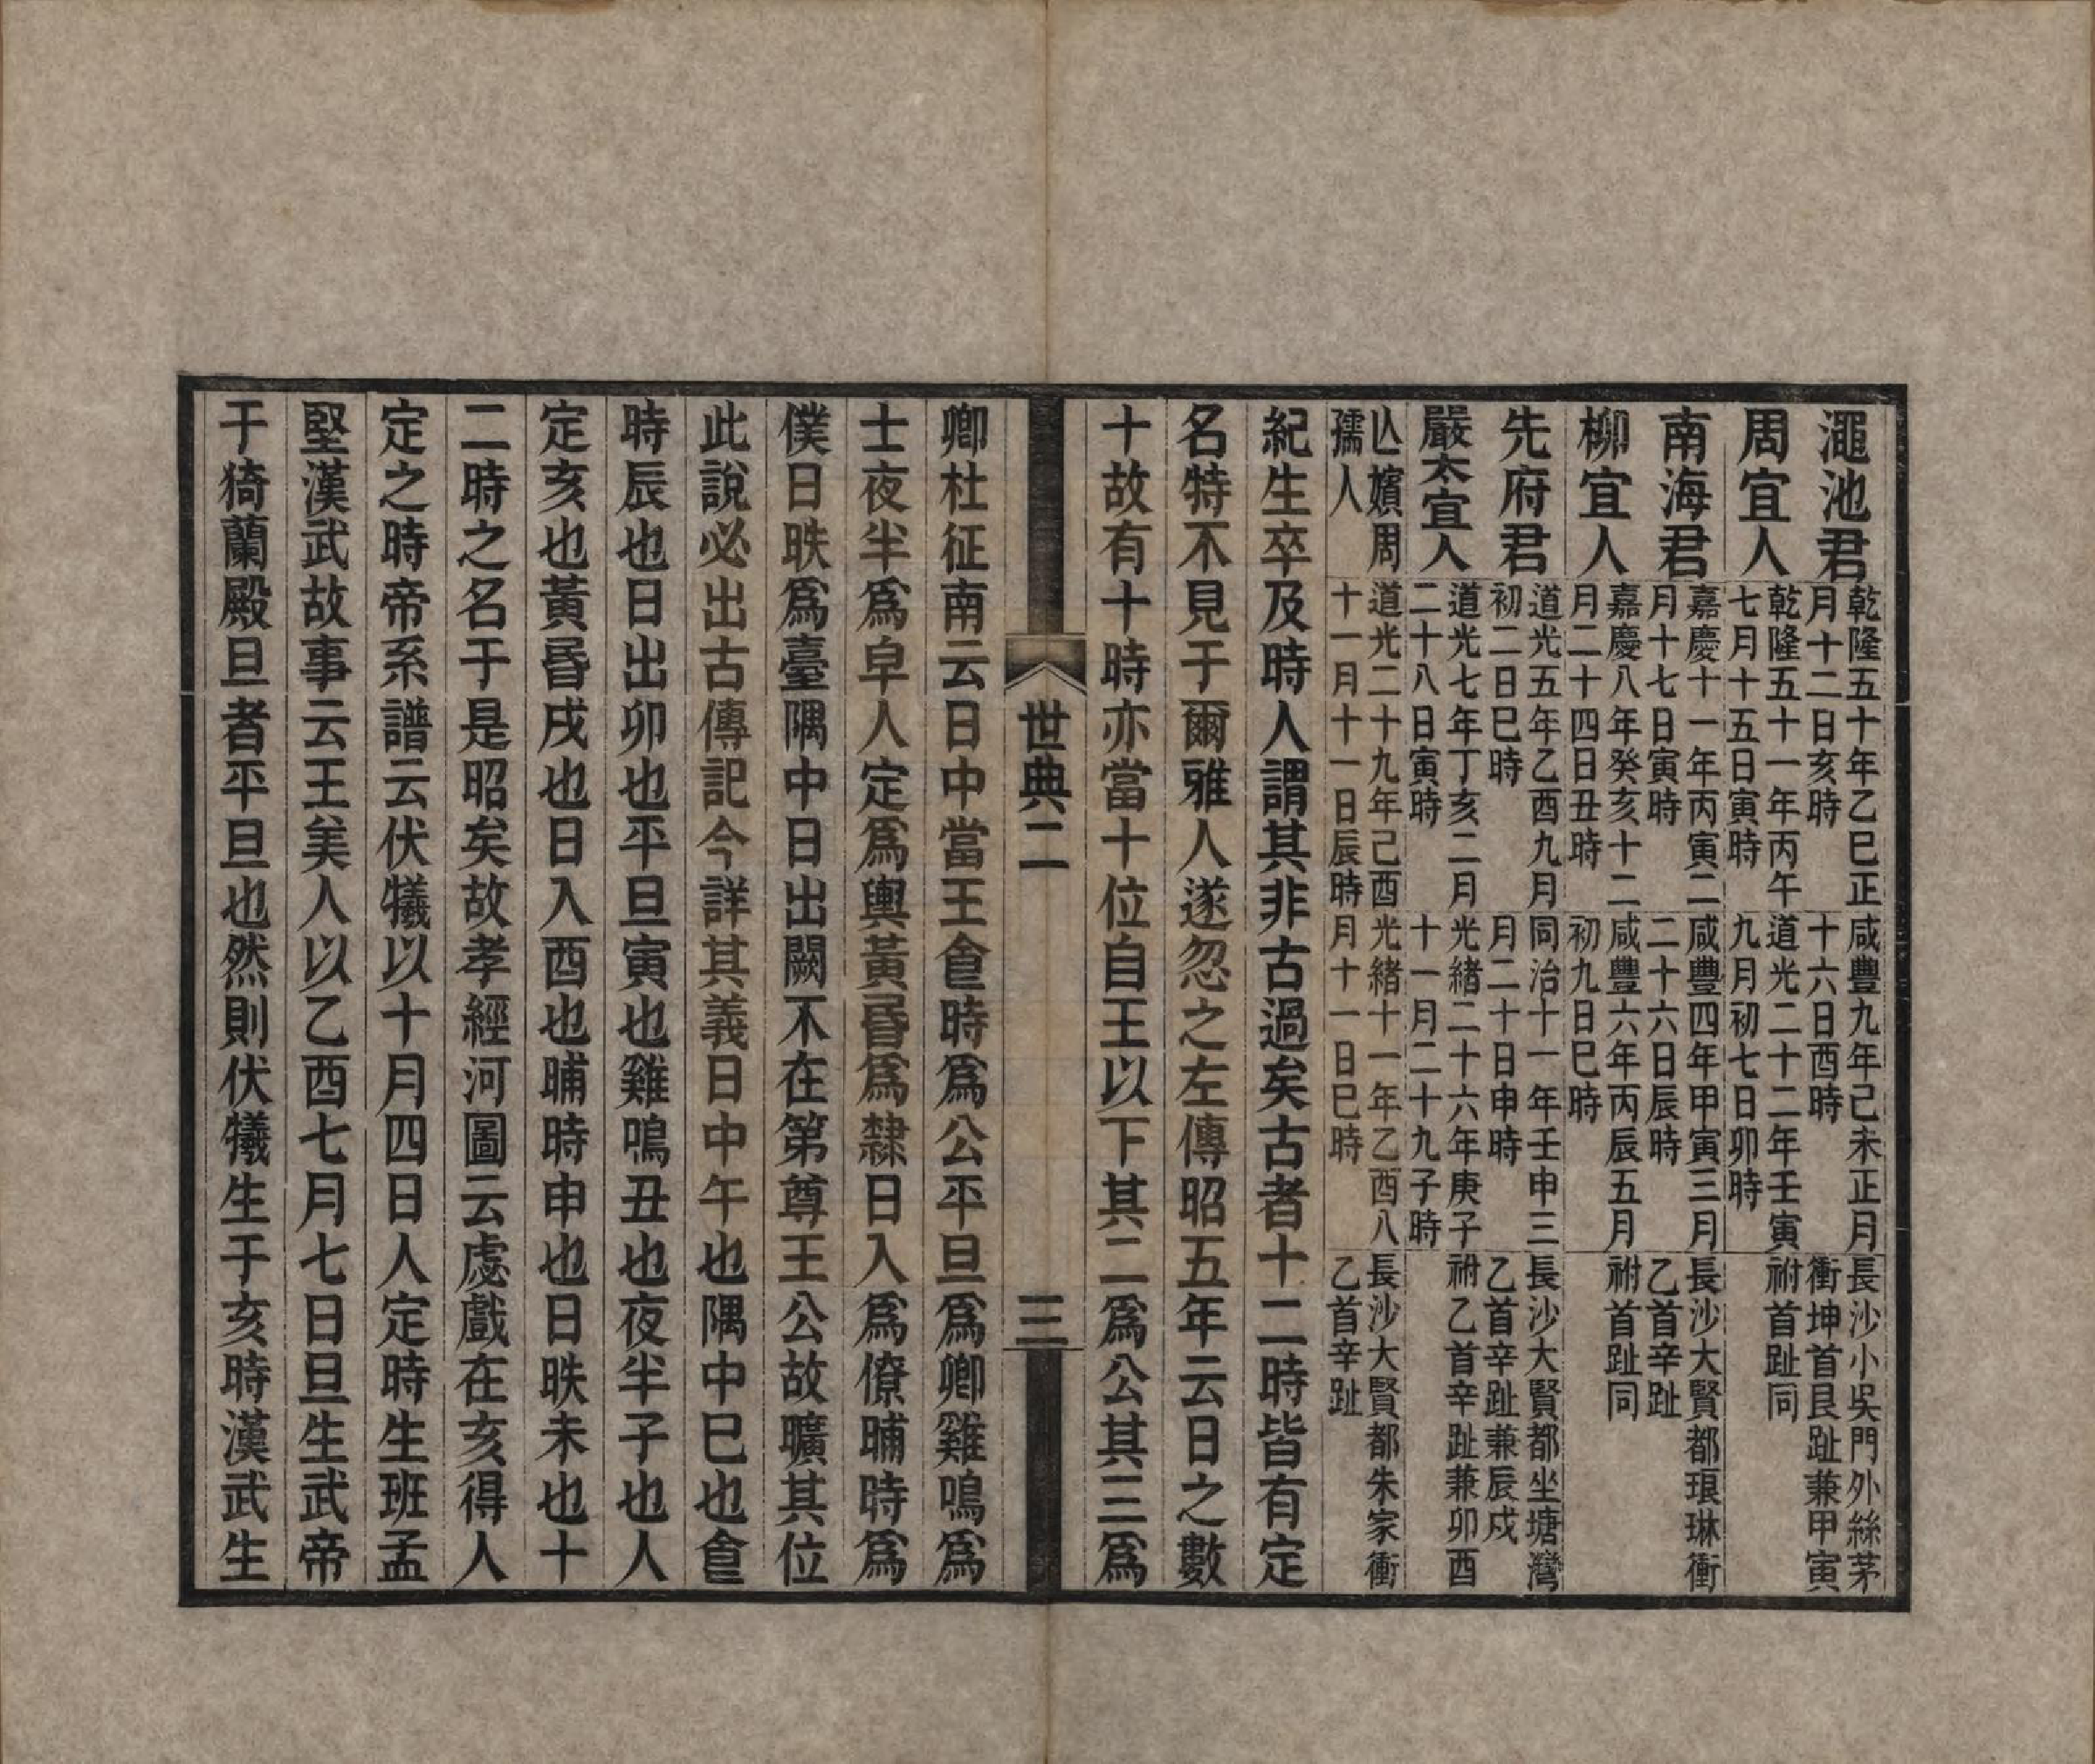 澠池君 乾隆五十年乙巳正月十二日亥時 咸豐九年己未正月十六日酉時 長沙小吳門外絲茅衝坤首艮趾兼甲寅
周宜人 乾隆五十一年丙午七月十五日寅時 道光二十二年壬寅九月初七日卯時 祔首趾同
南海君 嘉慶十一年丙寅二月十七日寅時 咸豐四年甲寅三月二十六日辰時 長沙大賢都琅琳衝乙首辛趾
柳宜人 嘉慶八年癸亥十二月二十四日丑時 咸豐六年丙辰五月初九日巳時 祔首趾同
先府君 道光五年乙酉九月初二日巳時 同治十一年壬申三月二十日申時 長沙大賢都坐塘灣乙首辛趾兼辰戍
嚴太宜人 道光七年丁亥二月二十八日寅時 光緒二十六年庚子十一月二十九子時 祔乙首辛趾兼卯酉
亾嬪周孺人 道光二十九年己酉十一月十一日辰時 光緒十一年乙酉八月十一日巳時 長沙大賢都朱家衝乙首辛趾
紀生卒及時人謂其非古過矣古者十二時皆有定
名特不見于爾雅人遂忽之左傳昭五年云日之數
十故有十時亦當十位自王以下其二爲公其三爲
世典二 三
卿杜征南云日中當王食時爲公平旦爲卿雞鳴爲
士夜半爲皁人定爲輿黃昬爲隸日入爲僚晡時爲
僕日昳爲臺隅中日出闕不在第尊王公故曠其位
此說必出古傳記今詳其義日中午也隅中巳也食
時辰也日出卯也平旦寅也雞鳴丑也夜半子也人
定亥也黃昬戌也日入酉也晡時申也日昳未也十
二時之名于是昭矣故孝經河圖云虙戲在亥得人
定之時帝系譜云伏犧以十月四日人定時生班孟
堅漢武故事云王美人以乙酉七月七日旦生武帝
于猗蘭殿旦者平旦也然則伏犧生于亥時漢武生